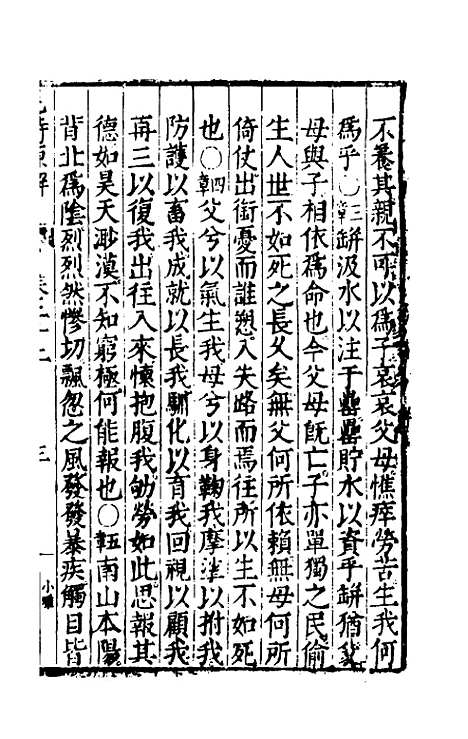 不養其親不可以爲子哀哀父母憔瘁勞苦生我何
爲乎○三章缾汲水以注于罍罍貯水以資乎缾猶父
母與子相依爲命也今父母旣亡子亦單獨之民偷
生人世不如死之長久矣無父何所依賴無母何所
倚仗出銜憂而誰愬入失路而焉往所以生不如死
也○四章父兮以氣生我母兮以身鞠我摩潷以拊我
防護以畜我成就以長我馴化以育我回視以顧我
再三以復我出往入來懷抱腹我劬勞如此思報其
德如昊天渺漠不知窮極何能報也○五章南山本陽
背北爲陰烈烈然慘切飄忽之風發發暴疾觸目皆
詩 解 卷二十二 三 小雅